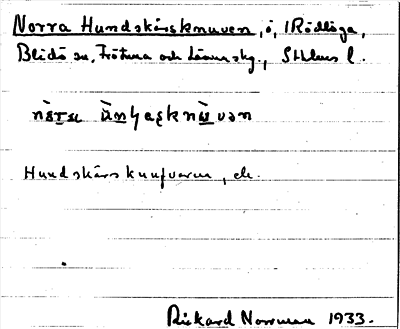 Norra Hundskärsknuven, ö, i Rödlöga,
Blidö sn, Frötuna och Länna skg., Sthlms l.
Hundskärsknufvarne, ek.
Rickard Norrman 1933.